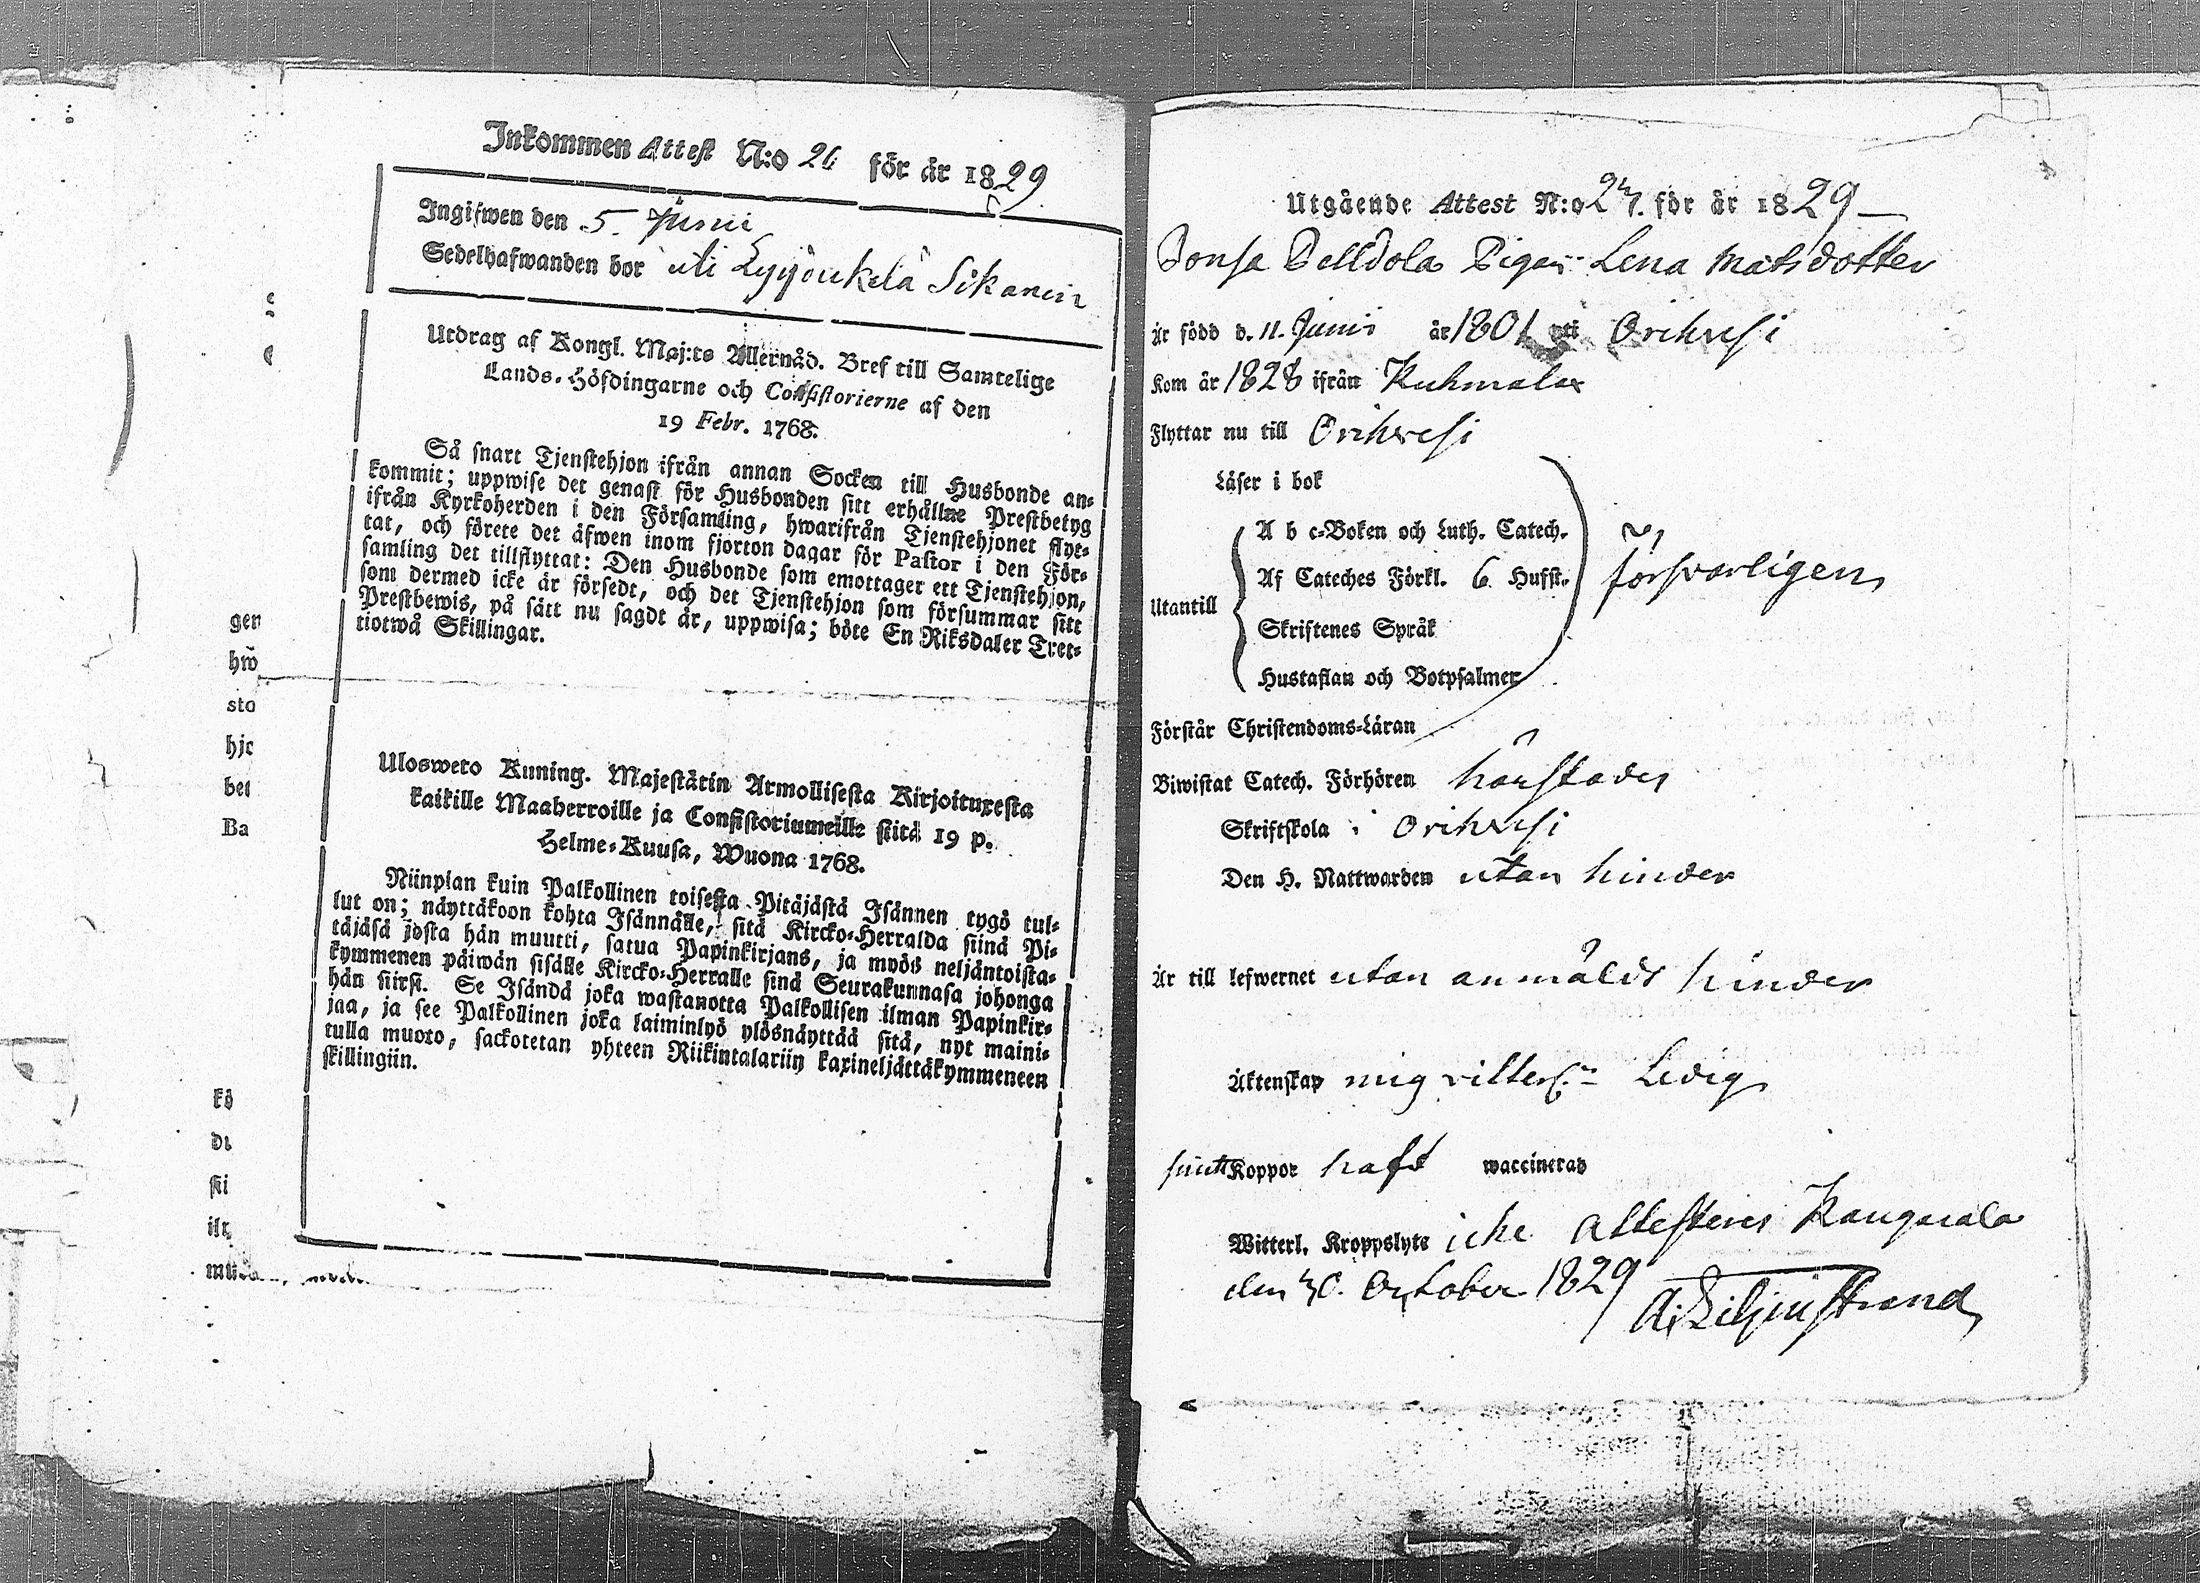 Inkommen Attest N:o 26 för år 1829
Ingifwen den 5. Junii
Sedelhafwanden bor uti Lyyöukälä Sikanein
Utdrag af Kongl. Maj:ts Allernåd. Bref till Samtelige
Lands-Höfdingarne och Consistorierne af den
19 Febr. 1768.
Så snart Tjenstehjon ifrån annan Socken till Husbonde an-
kommit; uppwise det genast för Husbonden sitt erhållne Prestbetyg
ifrån Kyrkoherden i den Församling, hwarifrån Tjenstehjonet flyt-
tat, och förete det äfwen inom fjorton dagar för Pastor i den För-
samling det tillflyttat: Den Husbonde som emottager ett Tjenstehjon,
som dermed icke är försedt, och det Tjenstehjon som försummar sitt
Prestbewis, på sätt nu sagdt är, uppwisa; böte En Riksdaler Tret-
tiotwå Skillingar.
Ulosweto Kuning. Majestätin Armollisesta Kirjoituxesta
kaikille Maaherroille ja Consistoriumeille siitä 19 p.
Helme-Kuusa, Wuona 1768.
Niinpian kuin Palkollinen toisesta Pitäjästä Isännen tygö tul-
lut on; näyttäkoon kohta Isännälle, sitä Kircko-Herralda siinä Pi-
täjäsä josta hän muutti, satua Papinkirjans, ja myös neljäntoista-
kymmenen päiwän sisälle Kircko-Herralle sinä Seurakunnasa johonga
hän siirsi. Se Isändä joka wastanotta Palkollisen ilman Papinkir-
jaa, ja see Palkollinen joka laiminlyö ylösnäyttää sitä, nyt maini-
tulla muoto, sackotetan yhteen Riikintalariin kaxineljättäkymmeneen
skillingiin.
gen
hw
sto
hjo
bet
Ba
kö
di
ski
Utgående Attest N:o 27. för år 1829
Pigan Lena Matsdotter
Är född d. 11. Junii år 1801 uti Orihvesi
Kom år 1828 ifrån Kuhmalax
Flyttar nu till Orihvesi
Läser i bok
A b c-Boken och Luth. Catech.
Af Cateches Förkl. 6 Hufst.
försvarligen
Utantill
Skriftenes Språk
Hustaflan och Botpsalmer
Förstår Christendoms-Läran
Biwistat Catech. Förhören härstädes
Skriftskola i Orihvesi
Den H. Nattwarden utan hinder
Är till lefwernet utan anmäldt hinder
Äktenskap mig vitterl. Ledig
Koppor haft waccinerad
Witterl. Kroppslyte icke attesteres Kangasala
den 30. October 1829
A: Liljenstrand